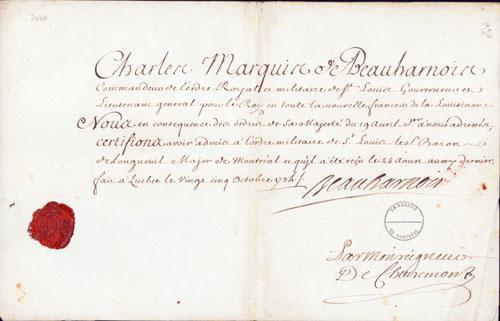 Charles Marquis de Beauharnois
Commandeur de l'ordre Royal et militaire de St. Louis Gouverneur et
Lieutenant general pour le Roy en toute la nouvelle france et la Louisianne
Nous en consequence des ordres de sa Majesté du 19 avril dr. a nous adressés
certifions avoir admis a l'ordre militaire de St. Louis le Sr. Baron
de Longueuil Major de Montréal et qu'il a été reçu le 25 aoust
dernier
fait a Quebec le Vingt cinq Octobre 1734
Beauharnois
Par Monseigneur
De Chevremont